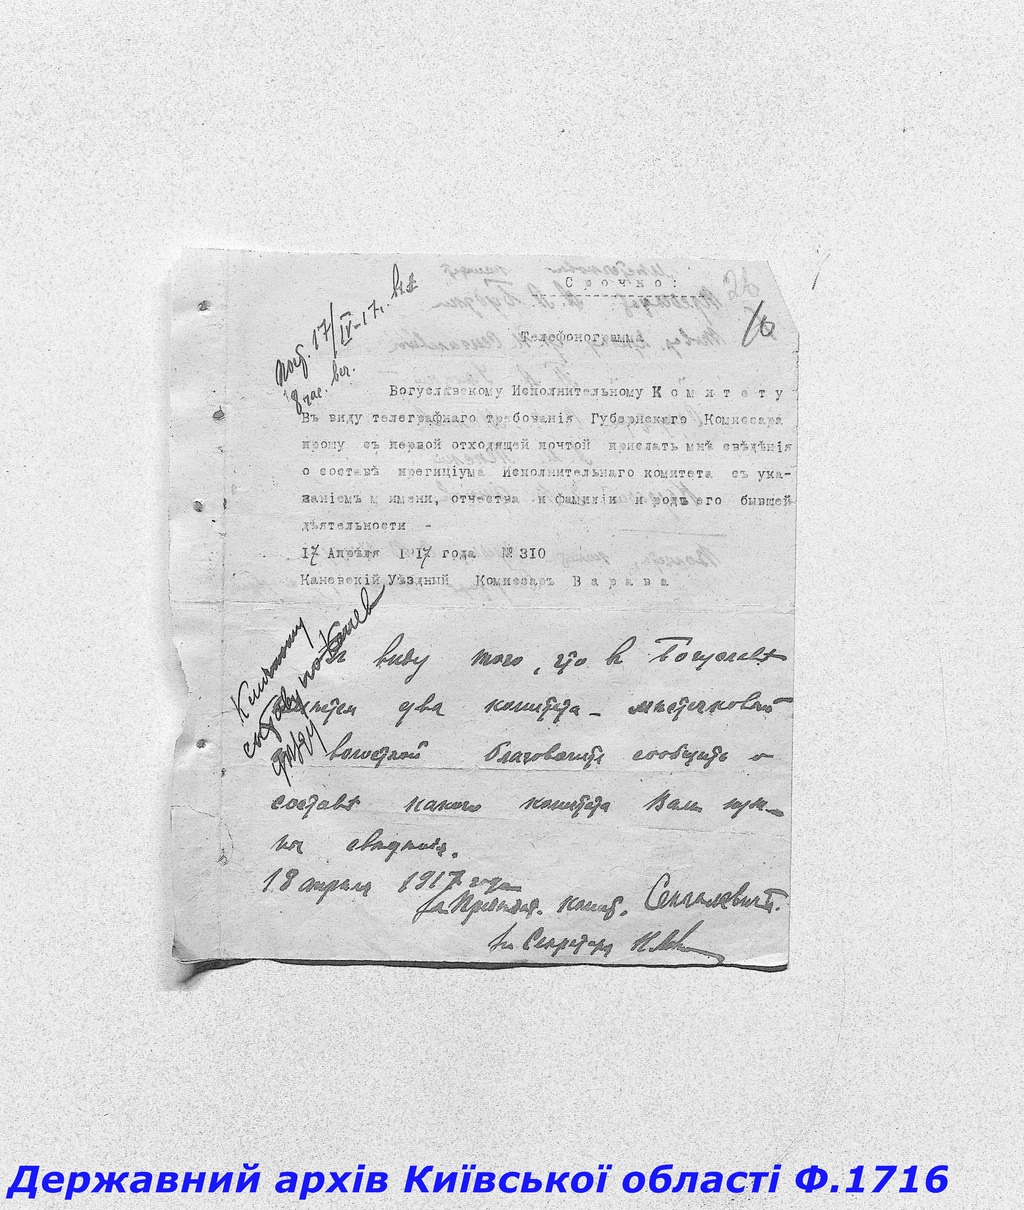 Срочно:
Телефонограмма
пол. 17/IV-17
8 час. веч.
Богуславскому Исполнительному Комитету
Въ виду телеграфнаго требованія Губернскаго Комиссара
прошу съ первой отходящей почтой прислать мнѣ свѣдѣнія
о составѣ прегидіума Исполнительнаго комитета съ ука-
заніемъ имени, отчества и фамиліи и родъ его бывшей
дѣятельности -
17 Апрѣля 1917 года № 310
Каневскій Уѣздный Комиссаръ Варава
В виду того, что в Богуславѣ
имѣется два комитета - мѣстечковый
волостной благоволите сообщить о
составѣ какого комитета Вам нуж-
ны свѣдѣнія.
18 апрѣля 1917 года
За Предсѣдат. комит.
За Секретаря
Державний архів Київської області Ф.1716